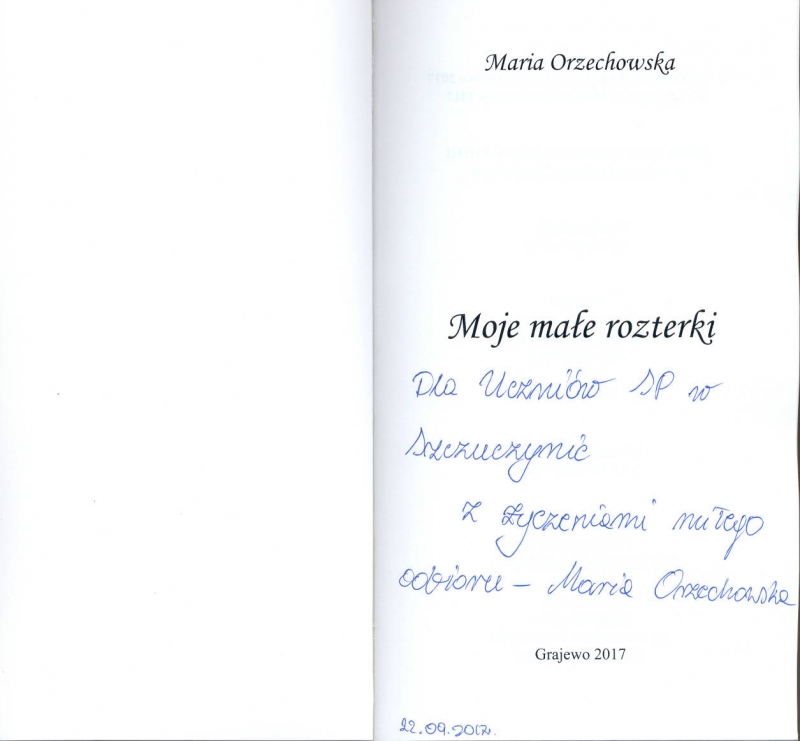 Maria Orzechowska
Moje małe rozterki
Dla Uczniów SP w
Szczuczynie
z życzeniami miłego
odbioru – Maria Orzechowska
Grajewo 2017
22.09.2017r.